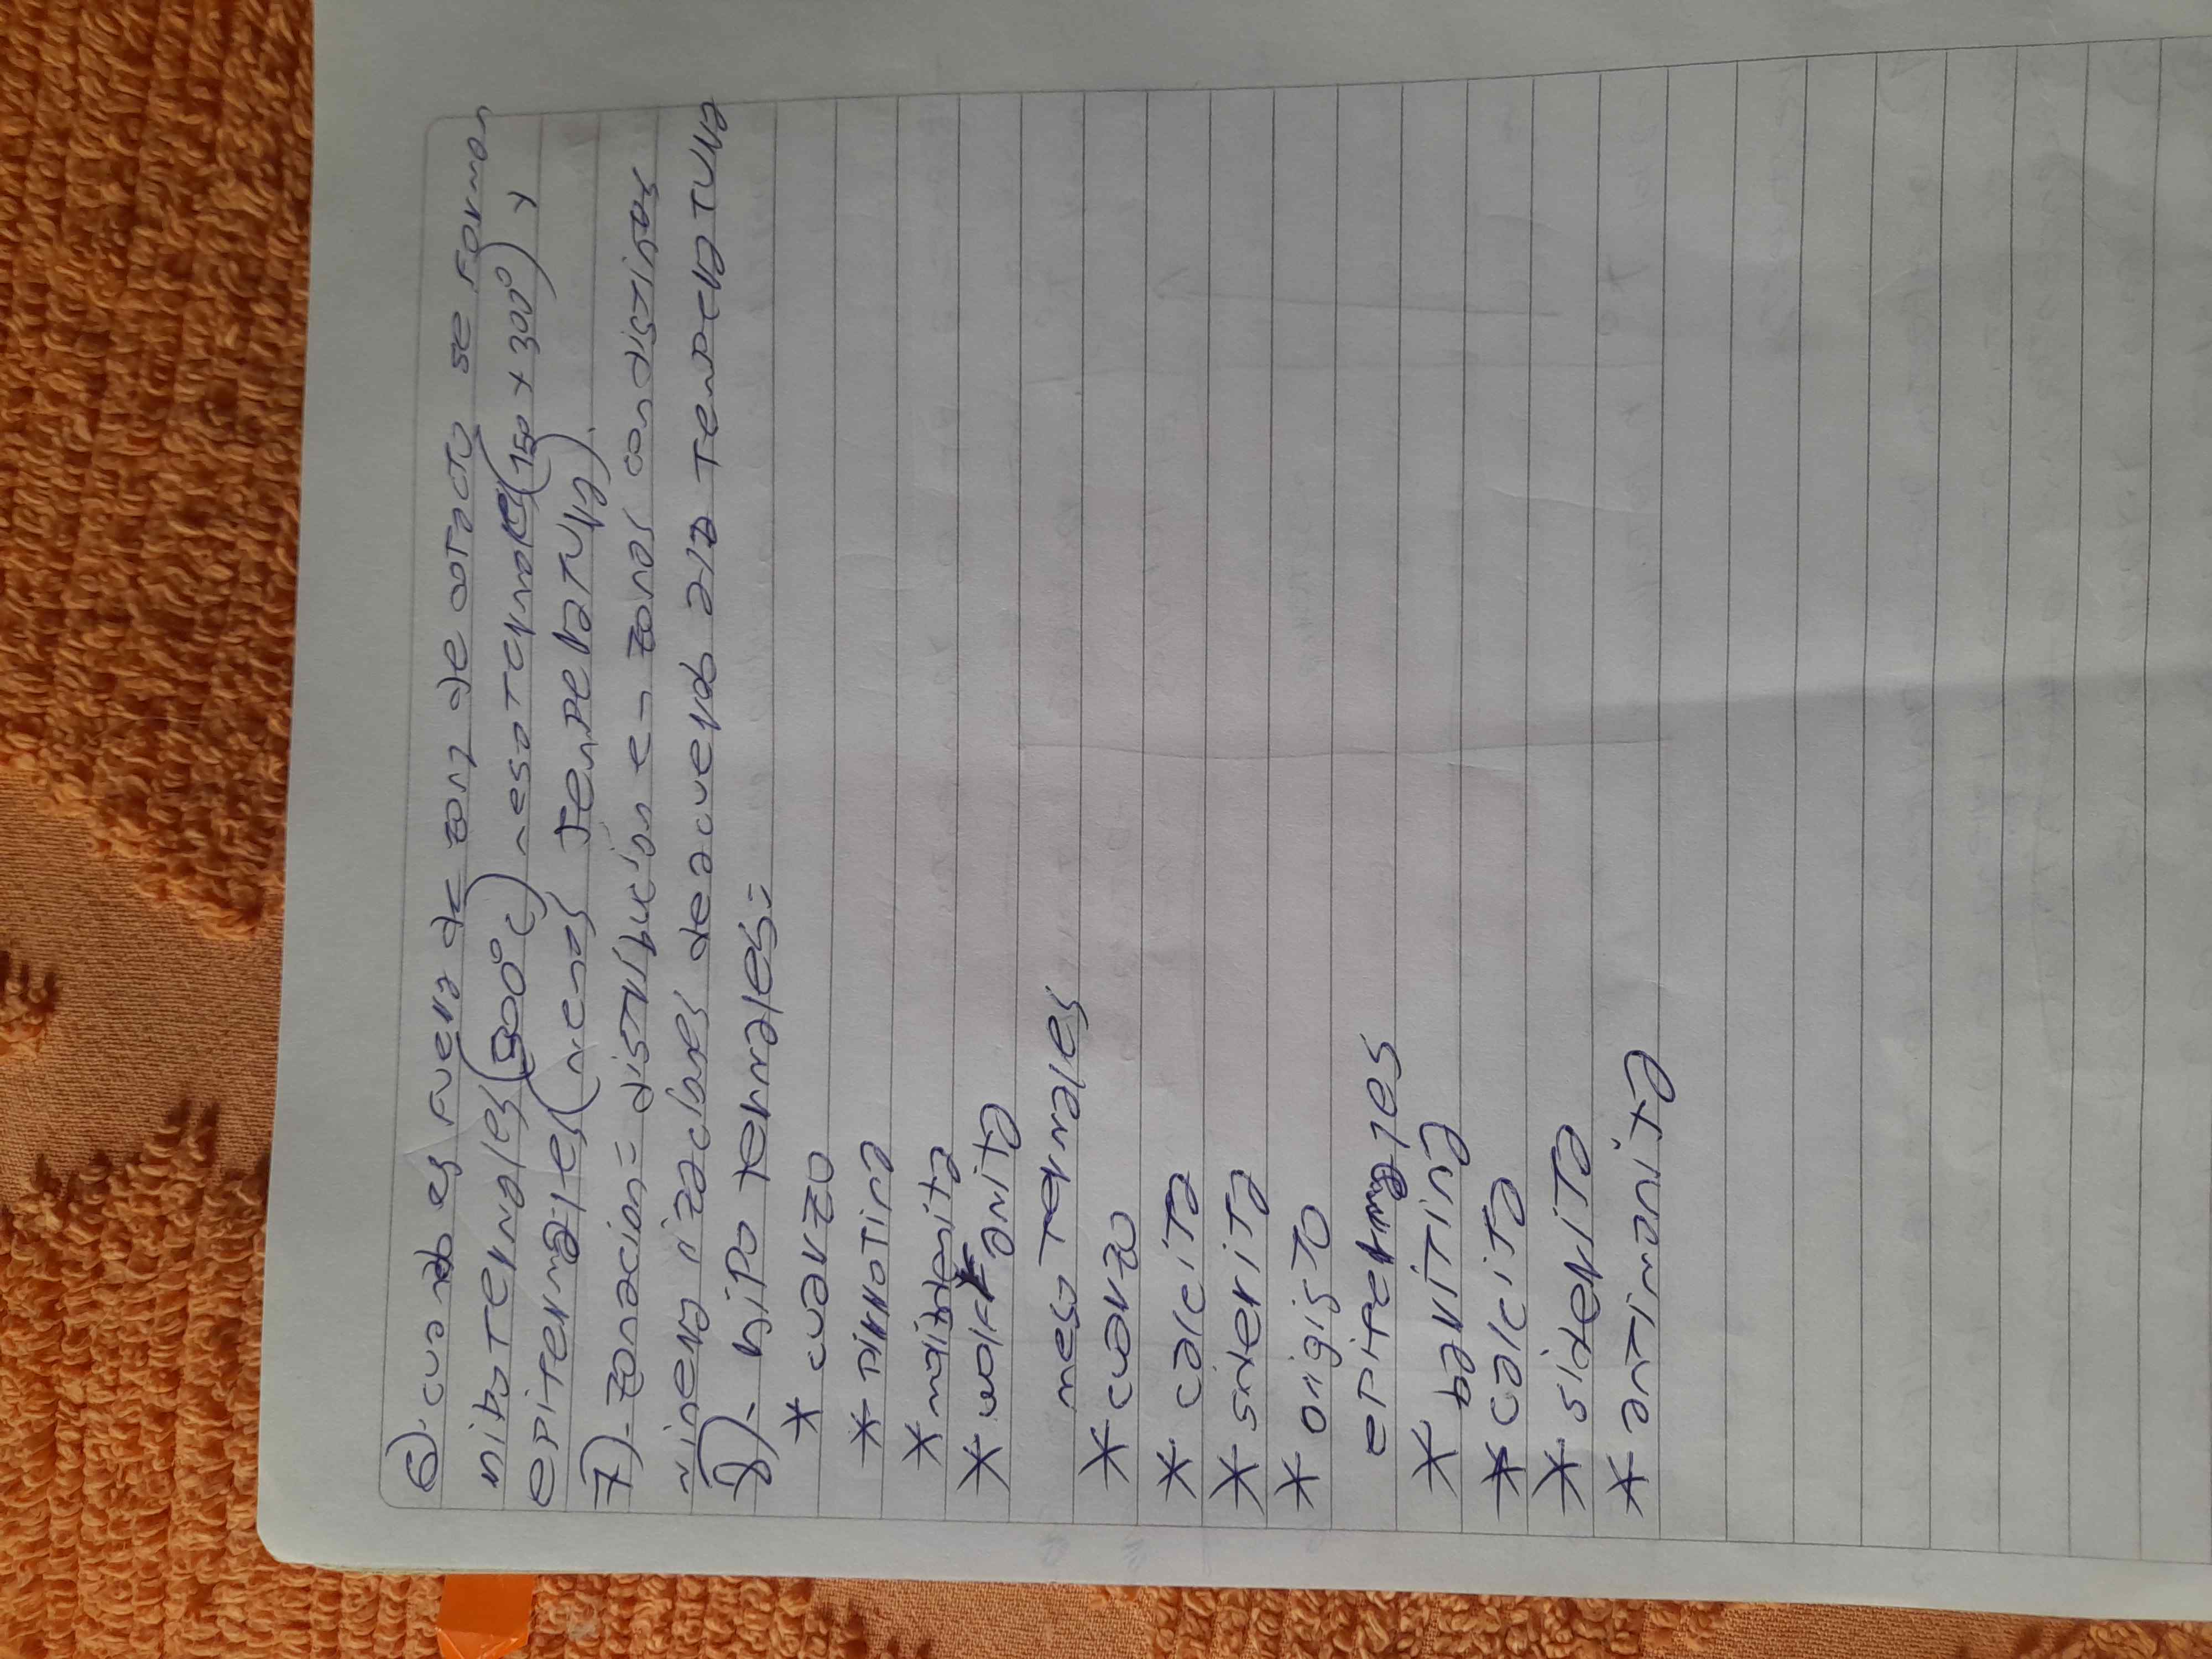 6). cuando es fuera de zona de cotacto se forman
hipotermales (300°c) mesotermales (150 y 300°) y
epitermales (menos temperatura).
7).- zonacion = distribución en zonas con distintas
mineralizaciones deacuerdo ala temperatura
8).- hipo termales:
* cuarzo
* pirrotina
* molibdenita
* wolframita
meso termales
* cuarzo
* calcita
* siderita
* origisto
epitermales
* baritina
* calcita
* siderita
* antimonita